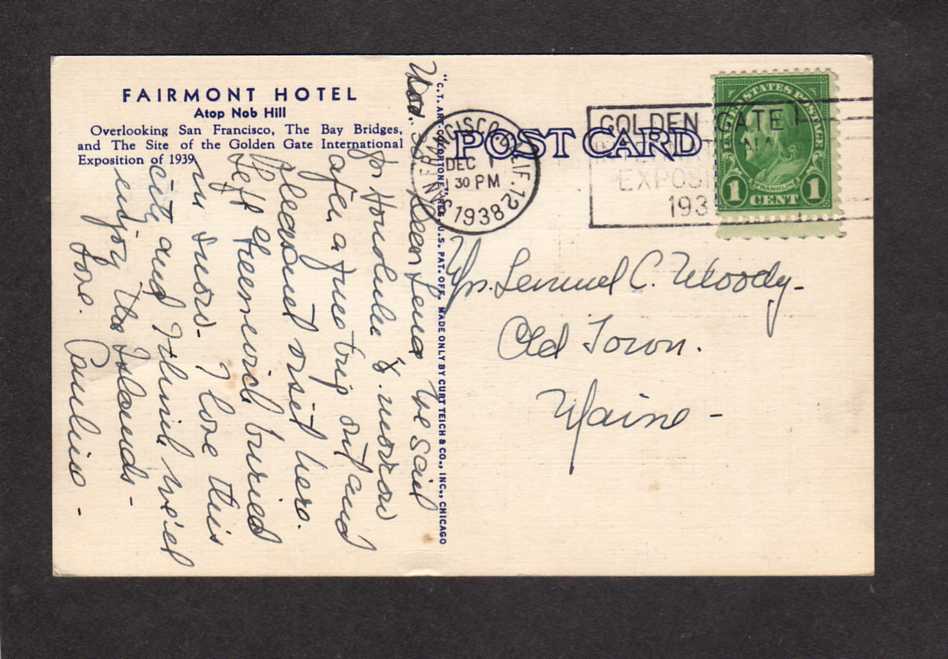 FAIRMONT HOTEL
Atop Nob Hill
Overlooking San Francisco, The Bay Bridges,
and The Site of the Golden Gate International
Exposition of 1939
Nov.
Dear Lena We sail
for Honolulu to-morrow
after a fine trip out and
pleasant visit here.
Left Greenwich buried
in snow. I love this
city and I think we'el
enjoy the Islands -
Love. Pauline.
"C.T. ART-COLORTONE" REG. U.S. PAT. OFF. MADE ONLY BY CURT TEICH & CO., INC., CHICAGO
POST CARD
SAN FRANCISCO, CALIF. 12
DEC 1
1 30 PM
1938
GOLDEN GATE
EXPOSI
193
UNITED STATES POSTAGE
FRANKLIN
1 CENT 1
Mrs. Lemuel C. Woody -
Old Town.
Maine -